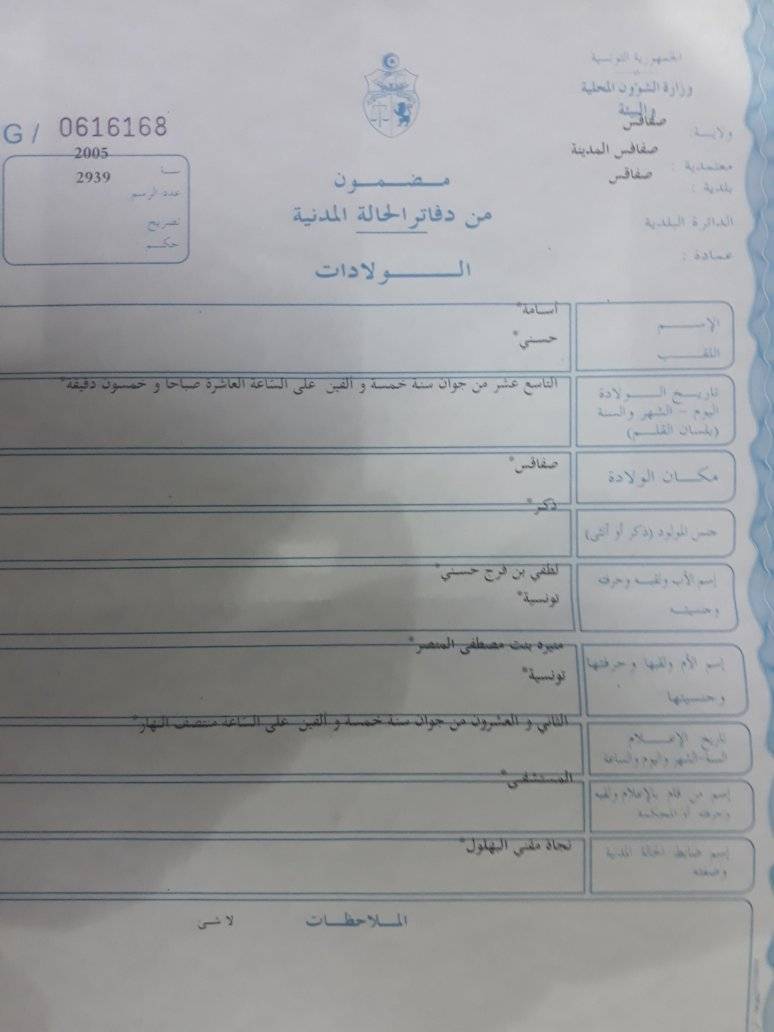 الجمهورية التونسية
وزارة الشؤون المحلية
والبيئة
ولاية : صفاقس
معتمدية : صفاقس المدينة
بلدية : صفاقس
الدائرة البلدية
عمادة :
G / 0616168
سنة 2005
عدد الرسم 2939
تصريح
حكم
مضمون
من دفاتر الحالة المدنية
الولادات
الإسم أسامة*
اللقب حسني*
تاريخ الولادة
اليوم - الشهر والسنة
(بلسان القلم)
التاسع عشر من جوان سنة خمسة و ألفين على الساعة العاشرة صباحا و خمسون دقيقة*
مكان الولادة صفاقس*
جنس المولود (ذكر أو أنثى) ذكر*
إسم الأب ولقبه وحرفته لطفي بن فرج حسني*
وجنسيته تونسية*
إسم الأم ولقبها وحرفتها منيره بنت مصطفى المنصر*
وجنسيتها تونسية*
تاريخ الإعلام
السنة-الشهر واليوم والساعة
الثاني و العشرون من جوان سنة خمسة و ألفين على الساعة منتصف النهار*
إسم من قام بالإعلام ولقبه
وحرفته أو المحكمة
المستشفى*
إسم ضابط الحالة المدنية
وصفته
نجاة مفني البهلول*
الملاحظات لا شئ